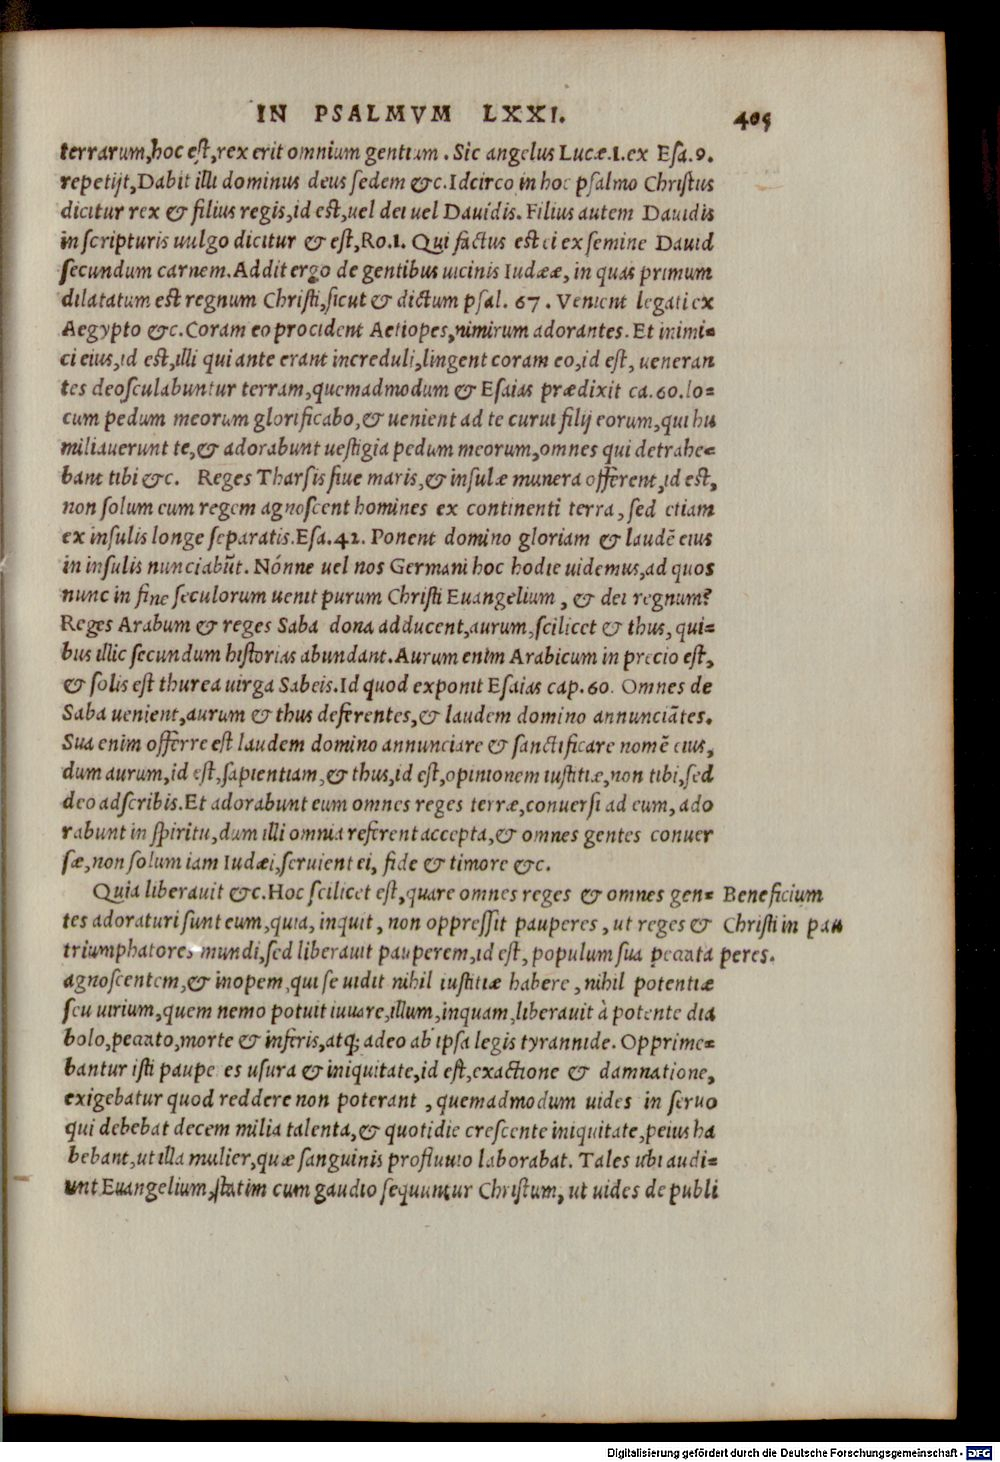 IN PSALMVM LXXI. 405
terrarum, hoc est, rex erit omnium gentium. Sic angelus Lucæ.1.ex Esa.9.
repetijt, Dabit illi dominus deus sedem &c. Idcirco in hoc psalmo Christus
dicitur rex & filius regis, id est, uel dei uel Dauidis. Filius autem Dauidis
in scripturis uulgo dicitur & est, Ro.1. Qui factus est ei ex semine Dauid
secundum carnem. Addit ergo de gentibus uicinis Iudææ, in quas primum
dilatatum est regnum Christi, sicut & dictum psal. 67. Venient legati ex
Aegypto &c. Coram eo procident Aetiopes, nimirum adorantes. Et inimi=
ci eius, id est, illi qui ante erant increduli, lingent coram eo, id est, ueneran
tes deosculabuntur terram, quemadmodum & Esaias prædixit ca.60.lo=
cum pedum meorum glorificabo, & uenient ad te curui filij eorum, qui hu
miliauerunt te, & adorabunt uestigia pedum meorum, omnes qui detrahe=
bant tibi &c. Reges Tharsis siue maris, & insulæ munera offerent, id est,
non solum eum regem agnoscent homines ex continenti terra, sed etiam
ex insulis longe separatis. Esa.42. Ponent domino gloriam & laudẽ eius
in insulis nunciabũt. Nónne uel nos Germani hoc hodie uidemus, ad quos
nunc in fine seculorum uenit purum Christi Euangelium, & dei regnum?
Reges Arabum & reges Saba dona adducent, aurum, scilicet & thus, qui=
bus illic secundum historias abundant. Aurum enim Arabicum in precio est,
& solis est thurea uirga Sabeis. Id quod exponit Esaias cap.60. Omnes de
Saba uenient, aurum & thus deferentes, & laudem domino annunciãtes.
Sua enim offerre est laudem domino annunciare & sanctificare nomẽ eius,
dum aurum, id est, sapientiam, & thus, id est, opinionem iustitiæ, non tibi, sed
deo adscribis. Et adorabunt eum omnes reges terræ, conuersi ad eum, ado
rabunt in spiritu, dum illi omnia referent accepta, & omnes gentes conuer
sæ, non solum iam Iudæi, seruient ei, fide & timore &c.
Quia liberauit &c. Hoc scilicet est, quare omnes reges & omnes gen=
tes adoraturi sunt eum, quia, inquit, non oppressit pauperes, ut reges &
triumphatores mundi, sed liberauit pauperem, id est, populum sua peccata
agnoscentem, & inopem, qui se uidit nihil iustitiæ habere, nihil potentiæ
seu uirium, quem nemo potuit iuuare, illum, inquam, liberauit à potente dia
bolo, peccato, morte & inferis, atq; adeo ab ipsa legis tyrannide. Opprime=
bantur isti paupe es usura & iniquitate, id est, exactione & damnatione,
exigebatur quod reddere non poterant, quemadmodum uides in seruo
qui debebat decem milia talenta, & quotidie crescente iniquitate, peius ha
bebant, ut illa mulier, quæ sanguinis profluuio laborabat. Tales ubi audi=
unt Euangelium, statim cum gaudio sequuntur Christum, ut uides de publi
Beneficium
Christi in pau
peres.
Digitalisierung gefördert durch die Deutsche Forschungsgemeinschaft - DFG